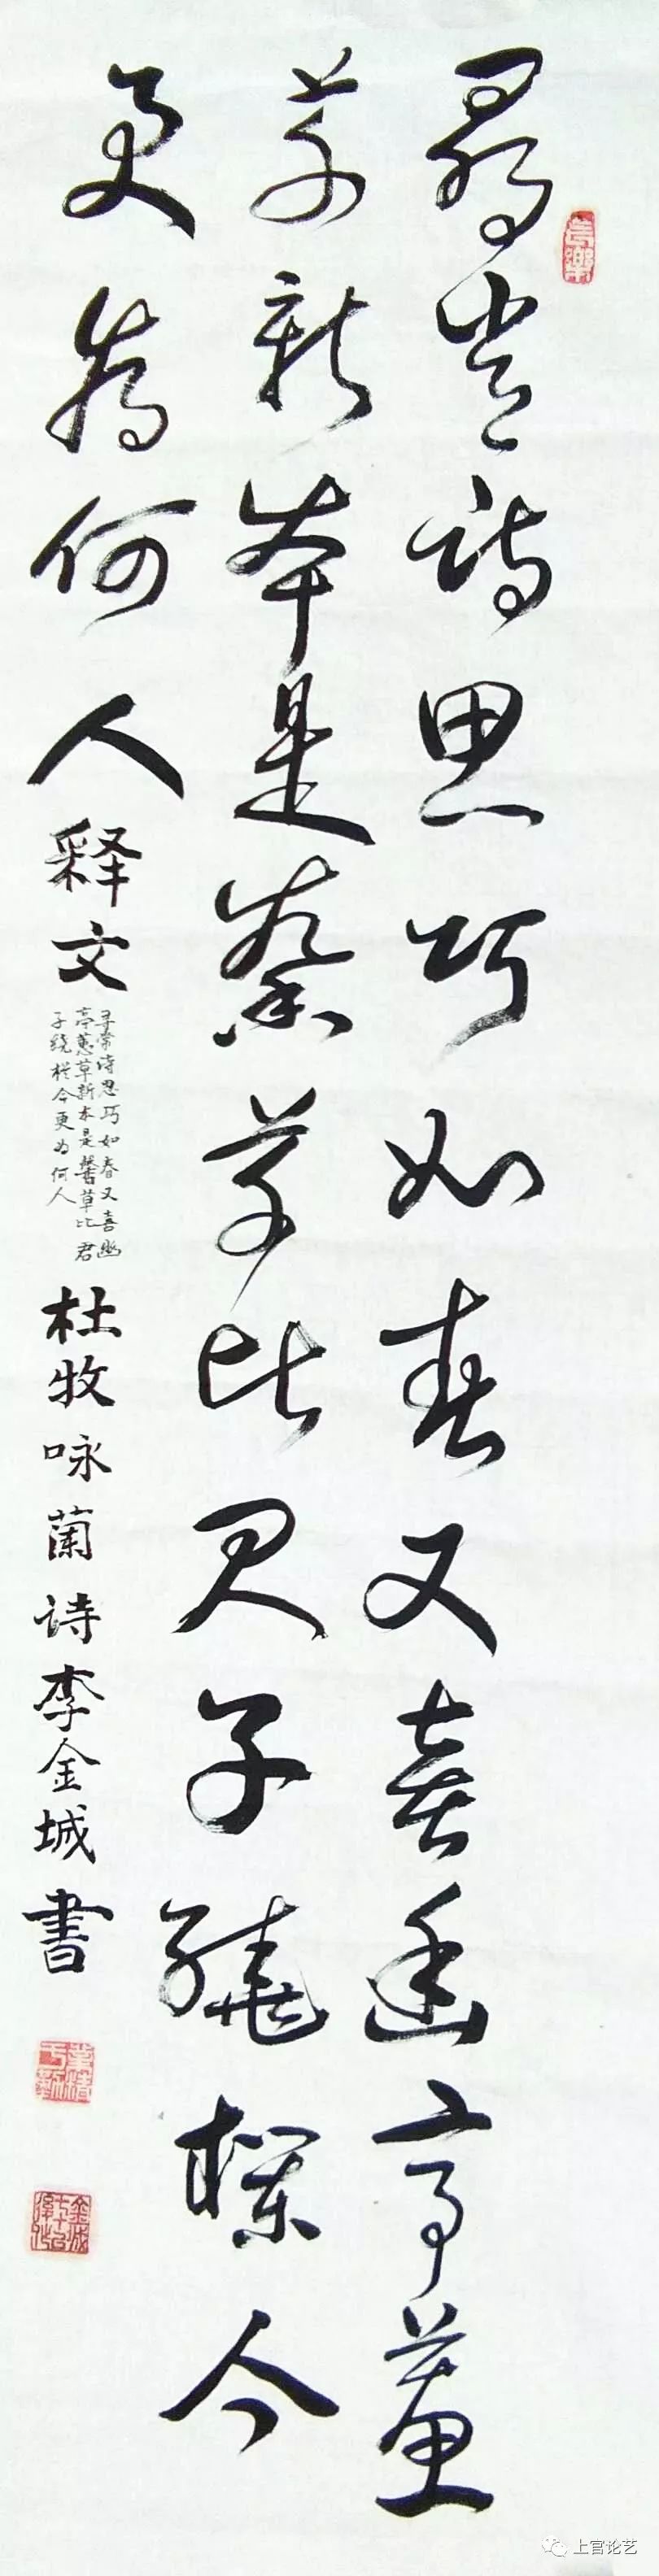 長樂
尋常詩思巧如春又喜幽亭蕙
草新本是馨草比君子繞欄今
更為何人释文
寻常诗思巧如春又喜幽
亭蕙草新本是馨草比君
子绕栏今更为何人
杜牧咏蘭诗李金城書
業精于勤
上官论艺